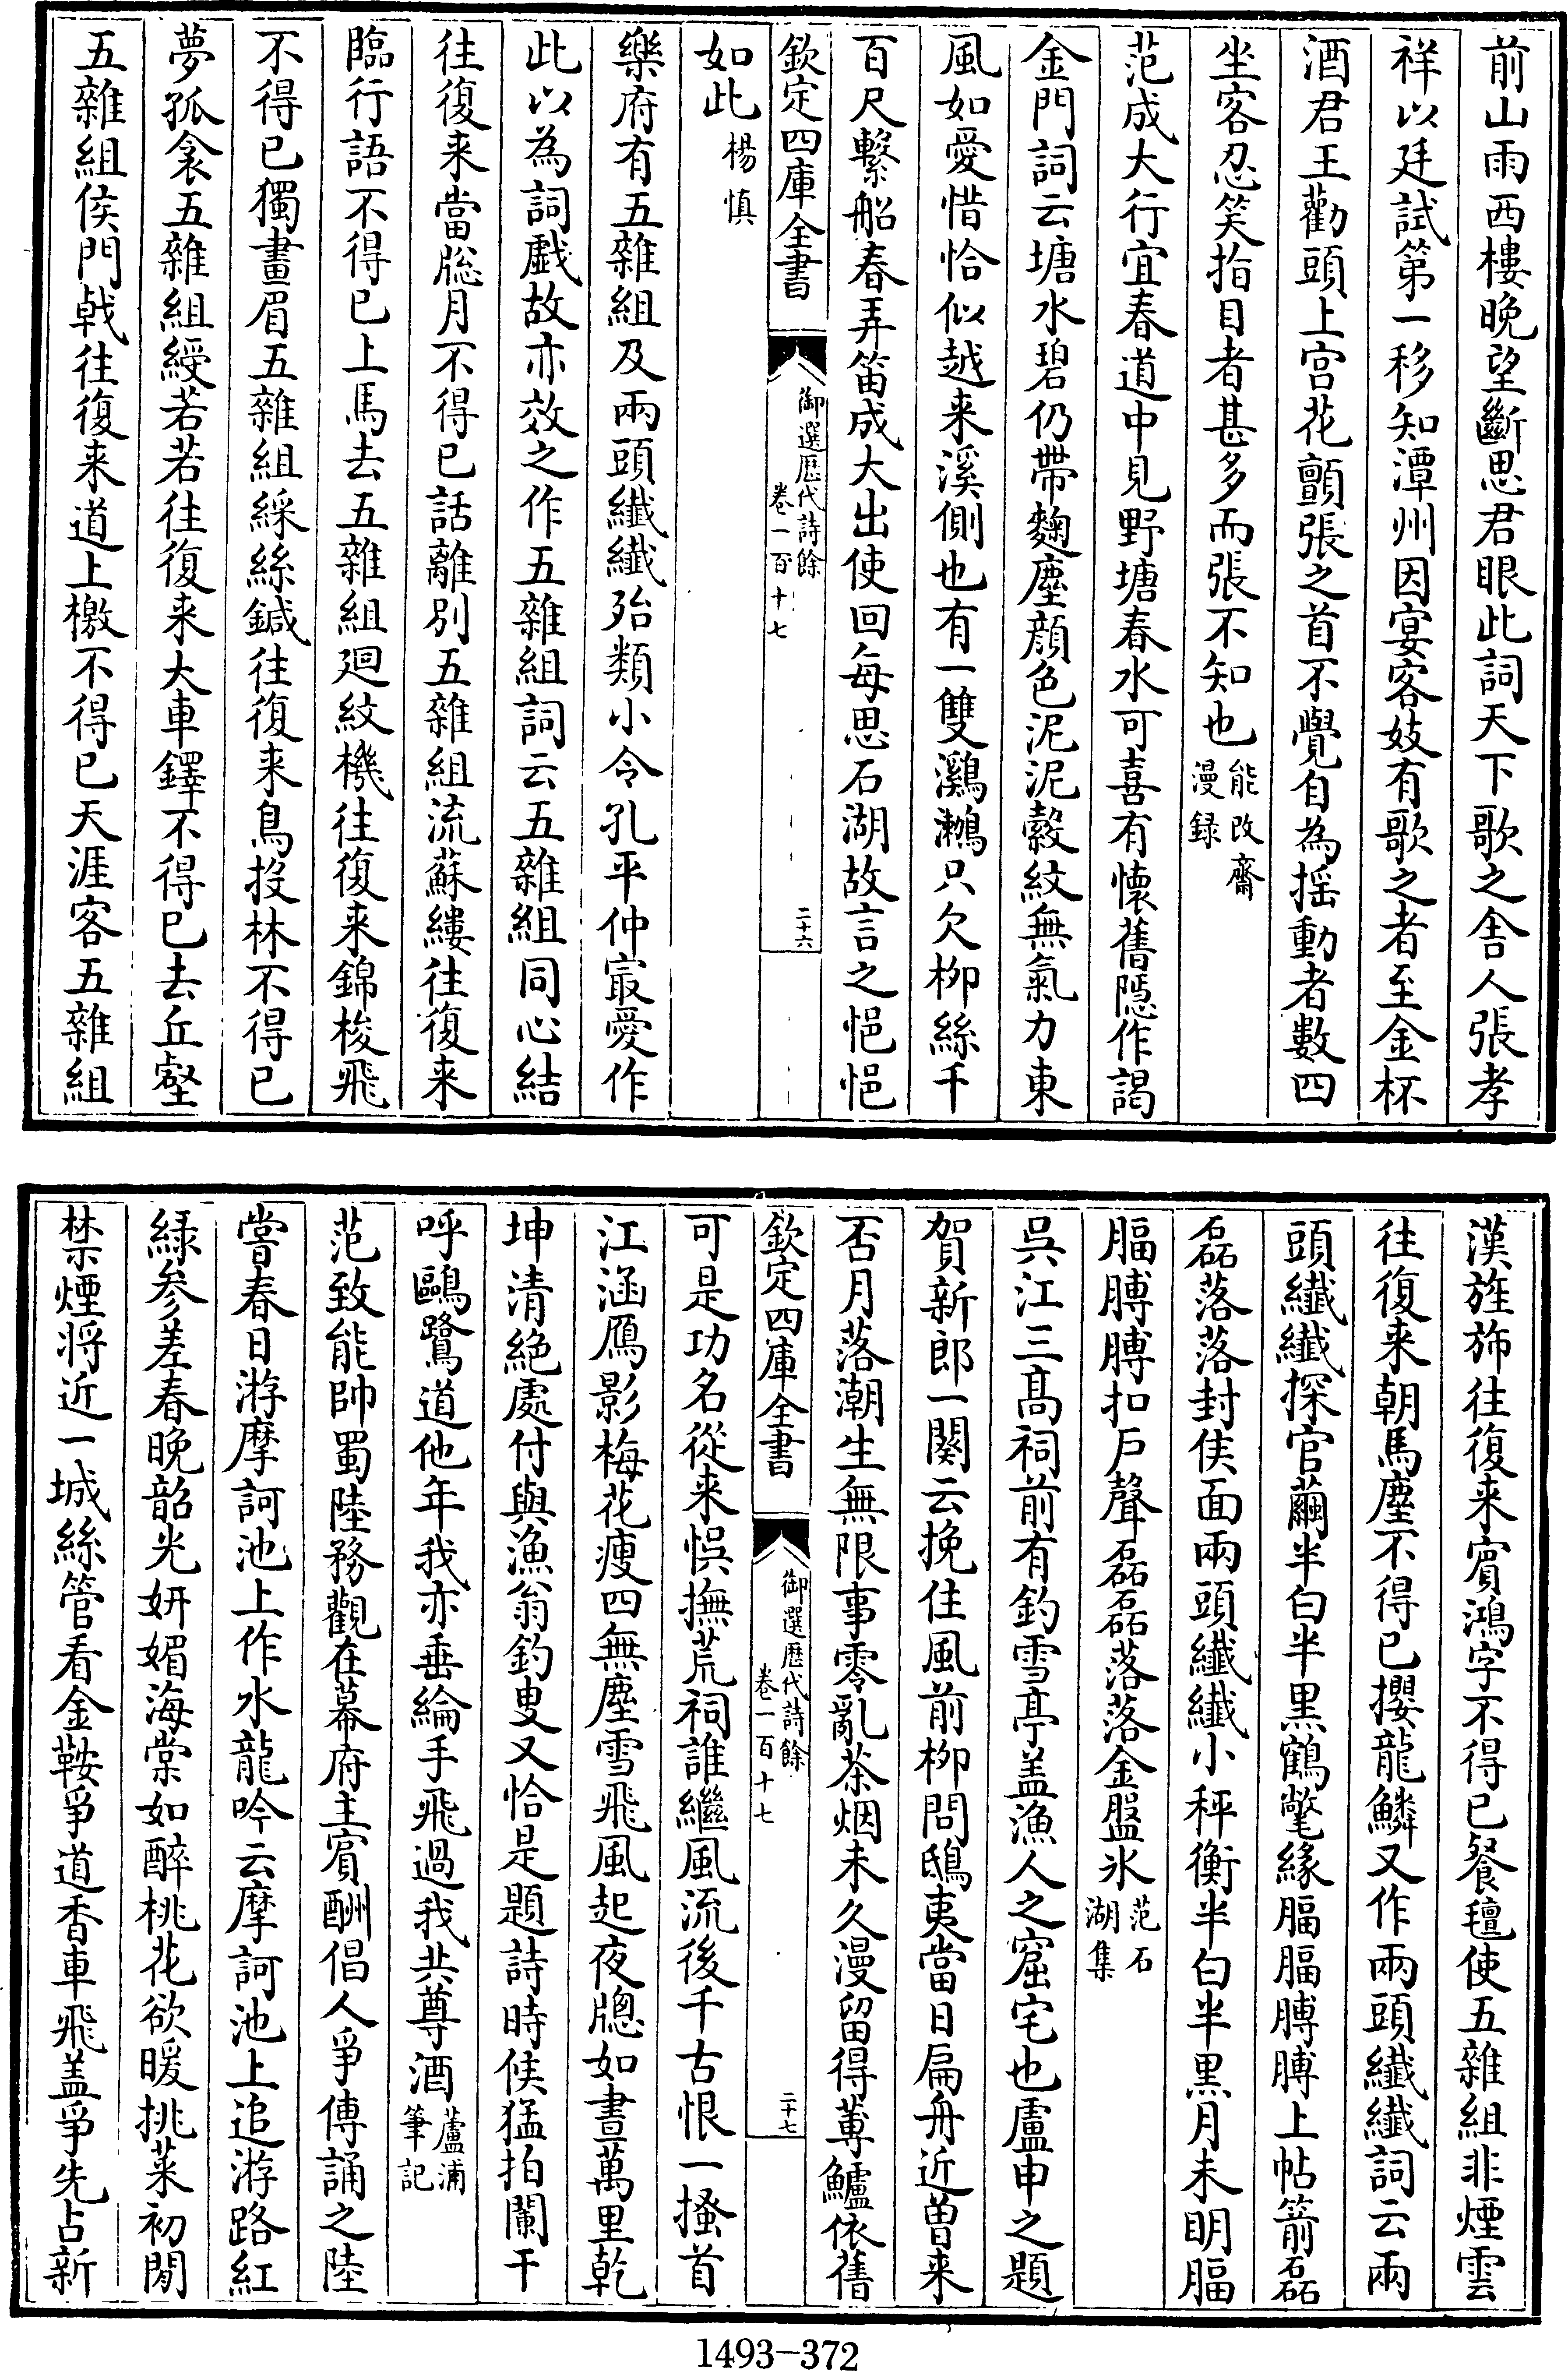 前山雨西樓晚望斷思君眼此詞天下歌之舎人張孝
祥以廷試第一移知潭州因宴客妓有歌之者至金杯
酒君王勸頭上宫花顫張之首不覺自為揺動者數四
坐客忍笑指目者甚多而張不知也能改齋
漫録
范成大行宜春道中見野塘春水可喜有懐舊隠作謁
金門詞云塘水碧仍帶麴塵顔色泥泥縠紋無氣力東
風如愛惜恰似越来溪側也有一雙鸂鶒只欠栁絲千
百尺繫船春弄笛成大出使回每思石湖故言之悒悒
欽定四庫全書
御選歴代詩餘
卷一百十七
二十六
如此楊慎
樂府有五雜組及兩頭纖纖殆類小令孔平仲㝡愛作
此以為詞戲故亦效之作五雜組詞云五雜組同心結
往復来當牎月不得已話離別五雜組流蘇縷往復来
臨行語不得已上馬去五雜組廻紋機往復来錦梭飛
不得已獨畫眉五雜組綵絲鍼往復来鳥投林不得已
夢孤衾五雜組綬若若往復来大車鐸不得已去丘壑
五雜組侯門㦸往復来道上檄不得已天涯客五雜組
漢旌斾往復来賓鴻字不得已餐氊使五雜組非煙雲
往復来朝馬塵不得已攖龍鱗又作兩頭纖纖詞云兩
頭纖纖探官繭半白半黒鶴氅緣腷腷膊膊上帖箭磊
磊落落封侯面兩頭纖纖小秤衡半白半黒月未明腷
腷膊膊扣戸聲磊磊落落金盤氷范石
湖集
吳江三髙祠前有釣雪亭盖漁人之窟宅也盧申之題
賀新郎一闋云挽住風前栁問鴟夷當日扁舟近曽来
否月落潮生無限事零亂茶烟未久漫留得蓴鱸依舊
欽定四庫全書
御選歴代詩餘
卷一百十七
二十七
可是功名從来悞撫荒祠誰繼風流後千古恨一搔首
江涵鴈影梅花痩四無塵雪飛風起夜牎如晝萬里乾
坤清絶處付與漁翁釣叟又恰是題詩時候猛拍闌干
呼鷗鷺道他年我亦垂綸手飛過我共尊酒蘆浦
筆記
范致能帥蜀陸務觀在幕府主賓酬倡人爭傳誦之陸
嘗春日游摩訶池上作水龍吟云摩訶池上追游路紅
緑參差春晚韶光妍媚海棠如醉桃花欲暖挑菜初閒
禁煙将近一城絲管看金鞍爭道香車飛盖爭先占新
1493-372